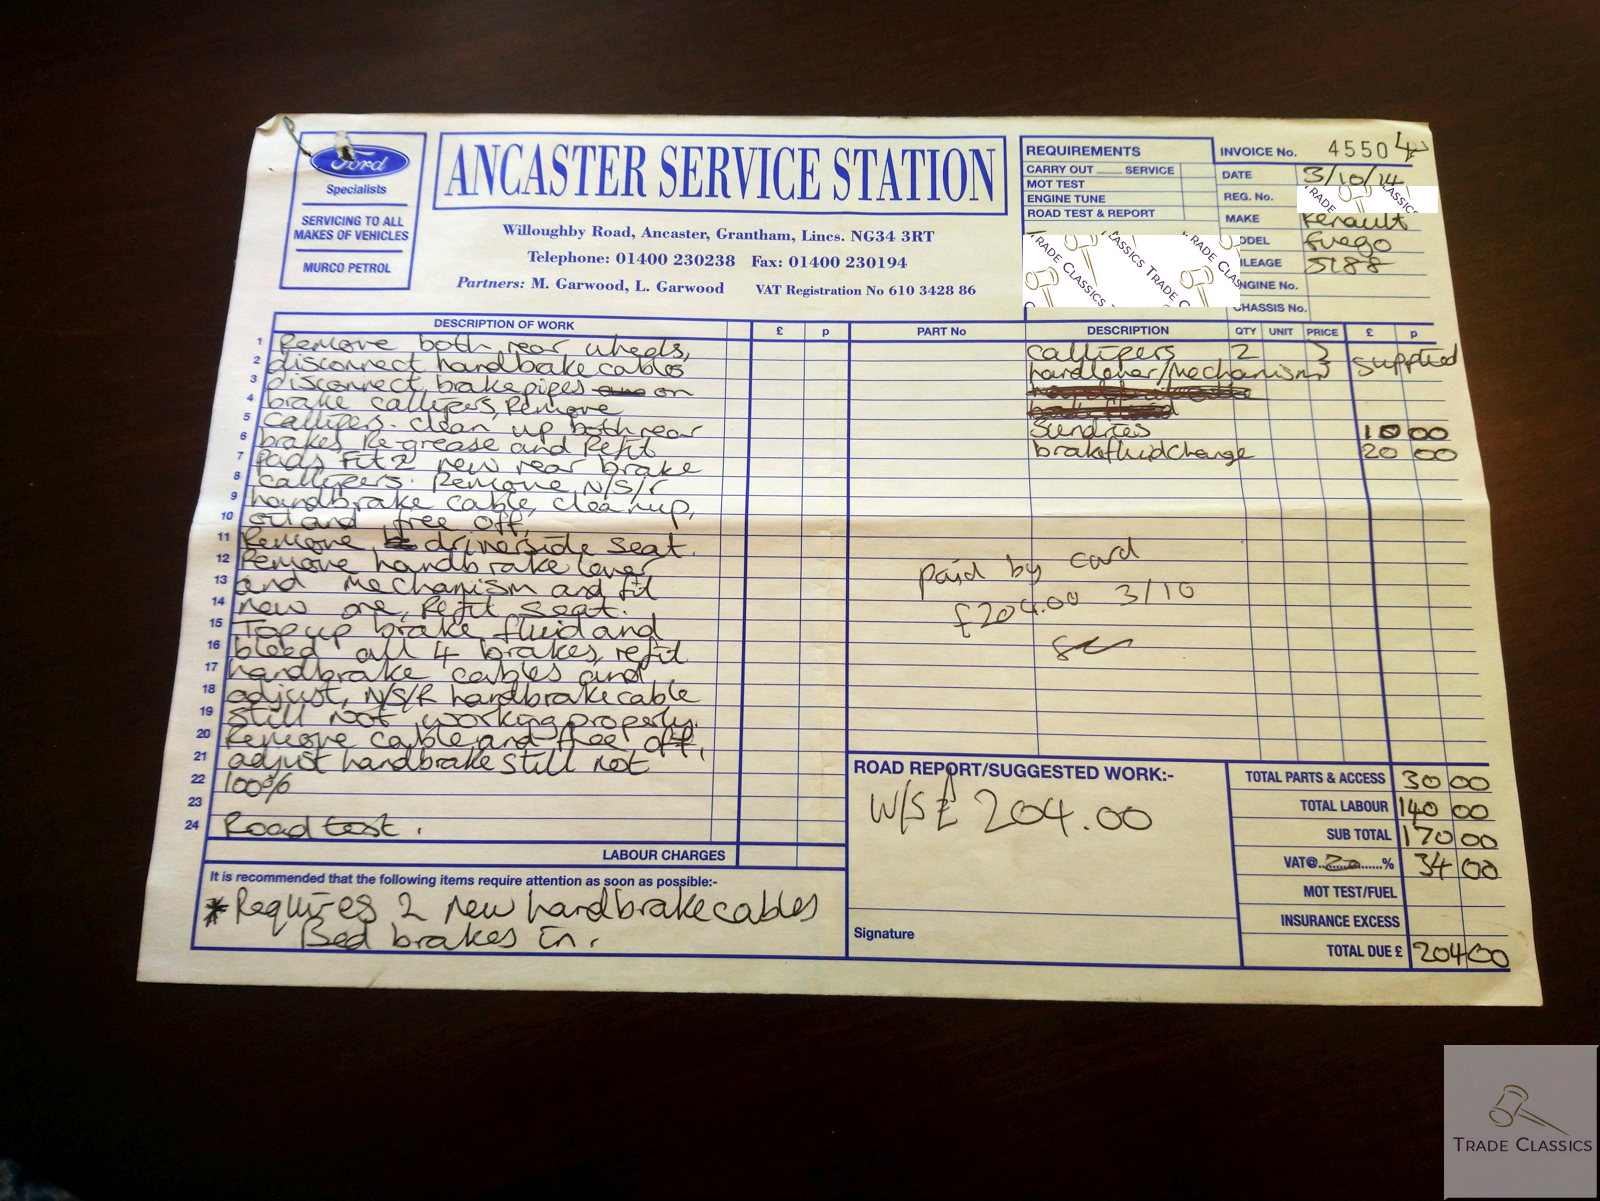 Ford
Specialists
SERVICING TO ALL
MAKES OF VEHICLES
MURCO PETROL
ANCASTER SERVICE STATION
Willoughby Road, Ancaster, Grantham, Lincs. NG34 3RT
Telephone: 01400 230238 Fax: 01400 230194
Partners: M. Garwood, L. Garwood VAT Registration No 610 3428 86
REQUIREMENTS
CARRY OUT ____ SERVICE
MOT TEST
ENGINE TUNE
ROAD TEST & REPORT
INVOICE No. 45504
DATE 3/10/14
REG. No.
MAKE Renault
MODEL Fuego
MILEAGE 5188
ENGINE No.
CHASSIS No.
TRADE CLASSICS
TRADE CLASSICS TRADE CLASSICS TRADE CLASSICS
DESCRIPTION OF WORK £ p
1 Remove both rear wheels,
2 disconnect handbrake cables
3 disconnect brake pipes on
4 brake callipers, Remove
5 Callipers. clean up both rear
6 brakes, Re-grease and Refit
7 Pads Fit 2 new rear brake
8 callipers. Remove N/S/r
9 handbrake cable, clean up,
10 oil and free off,
11 Remove driverside seat.
12 Remove handbrake lever
13 and mechanism and fit
14 new one, Refit seat.
15 Top up brake fluid and
16 bleed all 4 brakes, refit
17 handbrake cables and
18 adjust, N/S/R handbrake cable
19 still not working properly.
20 Remove cable and free off,
21 adjust handbrake still not
22 100%
23
24 Road test.
LABOUR CHARGES
It is recommended that the following items require attention as soon as possible:-
* Requires 2 new handbrake cables
Bed brakes in.
PART No DESCRIPTION QTY UNIT PRICE £ p
callipers 2 } supplied
hand lever/mechanism
Sundries 10 00
brake fluid change 20 00
paid by card
£204.00 3/10
ROAD REPORT/SUGGESTED WORK:-
W/S £ 204.00
Signature
TOTAL PARTS & ACCESS 30 00
TOTAL LABOUR 140 00
SUB TOTAL 170 00
VAT@...20......% 34 00
MOT TEST/FUEL
INSURANCE EXCESS
TOTAL DUE £ 204 00
TRADE CLASSICS